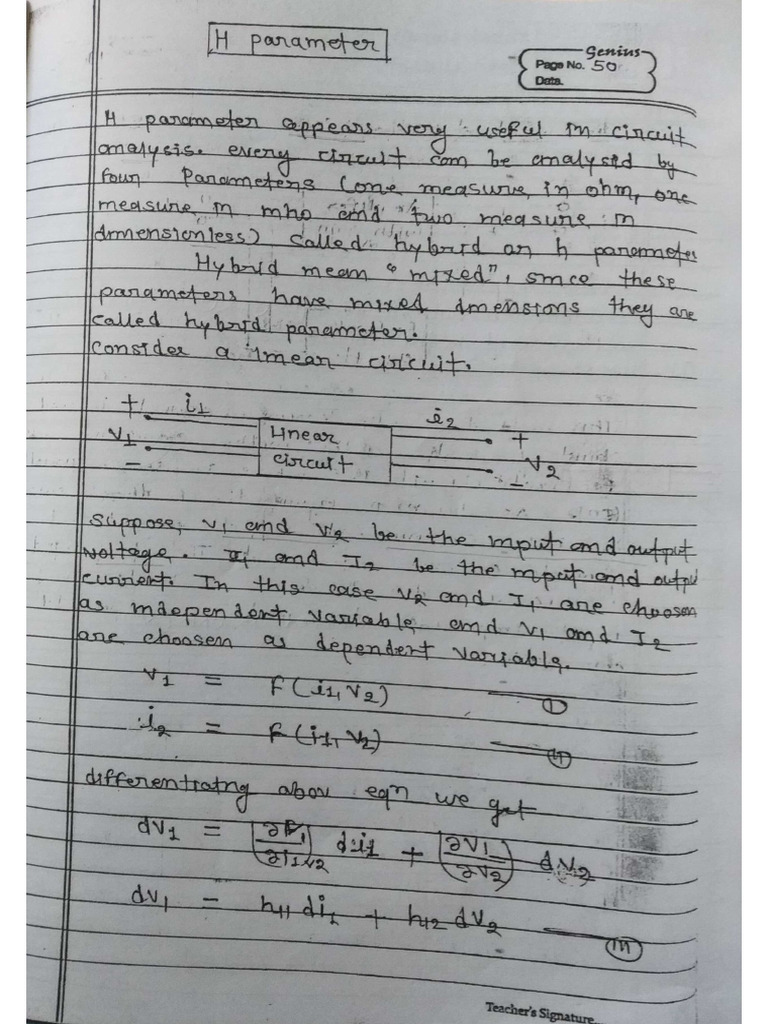 H parameter
Genius
Page No. 50
Date.
H parameter appears very useful in circuit
analysis. every circuit can be analysid by
four Parameters (one measure in ohm, one
measure in mho and two measure in
dimensionless) called hybrid or h parameter
Hybrid mean "mixed", since these
parameters have mixed dimensions they are
called hybrid parameter.
consider a linear circuit.
+ i1 i2 +
V1 Linear circuit V2
- -
Suppose, v1 and v2 be the input and output
voltage. I1 and I2 be the input and output
current. In this case v2 and I1 are choosen
as independent variable and v1 and I2
are choosen as dependent variable.
v1 = f(i1, v2) — (I)
i2 = f(i1, v2) — (II)
differentiatng abov eqn we get
dv1 = (∂V1/∂I1)v2 di1 + (∂V1/∂V2) dv2
dv1 = h11 di1 + h12 dv2 — (III)
Teacher's Signature